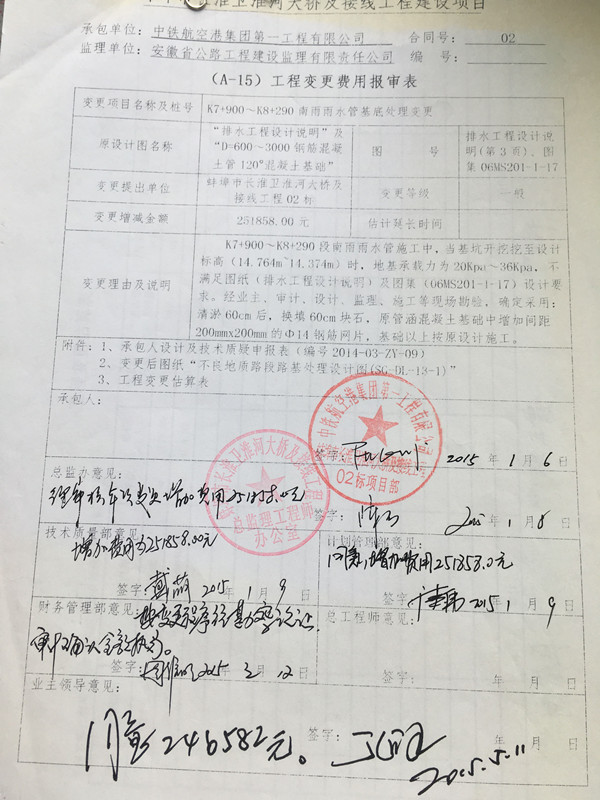 长淮卫淮河大桥及接线工程建设项目
承包单位：中铁航空港集团第一工程有限公司 合同号：02
监理单位：安徽省公路工程建设监理有限责任公司 编 号：
（A-15）工程变更费用报审表
变更项目名称及桩号 K7+900～K8+290南雨雨水管基底处理变更
原设计图名称 “排水工程设计说明”及“D=600～3000钢筋混凝土管120°混凝土基础” 图 号 排水工程设计说明(第3页)、图集06MS201-1-17
变更提出单位 蚌埠市长淮卫淮河大桥及接线工程02标 变更等级 一般
变更增减金额 251858.00元 估计延长时间
变更理由及说明
K7+900～K8+290段南雨雨水管施工中，当基坑开挖挖至设计
标高（14.764m~14.374m）时，地基承载力为20Kpa～36Kpa，不
满足图纸（排水工程设计说明）及图集（06MS201-1-17）设计要
求。经业主、审计、设计、监理、施工等现场勘验，确定采用：
清淤60cm后，换填60cm块石，原管涵混凝土基础中增加间距
200mmx200mm的Φ14钢筋网片，基础以上按原设计施工。
附件：1、承包人设计及技术质疑申报表（编号2014-03-ZY-09）
2、变更后图纸“不良地质路段路基处理设计图(SG-DL-13-1)”
3、工程变更估算表
承包人：
签字： 2015年1月6日
中铁航空港集团第一工程有限公司
02标项目部
总监办意见：
增加费用251858.00元
签字： 2015年1月8日
长淮卫淮河大桥及接线工程
总监理工程师
办公室
技术质量部意见：
增加费用为251858.00元
签字： 2015年1月9日
计划管理部意见：
同意增加费用251858.0元
签字： 2015年1月9日
财务管理部意见：
签字： 2015年2月12日
总工程师意见：
签字： 年 月 日
业主领导意见：
246582元。
签字： 年 月 日
2015.5.11